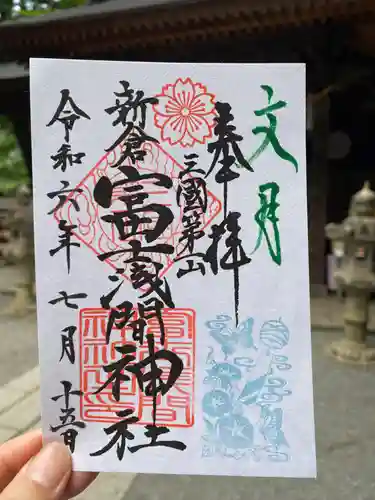 文月
奉拝
三國第一山
新倉富士浅間神社
令和六年七月十五日